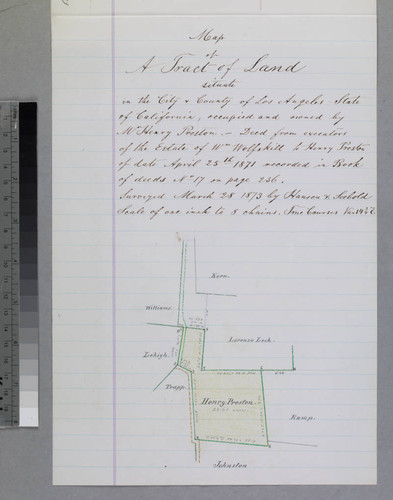 Map
of
A Tract of Land
situate
in the City & County of Los Angeles State
of California, occupied and owned by
Mr Henry Preston. – Deed from executors
of the Estate of Wm Wolfskill to Henry Preston
of date April 25th 1871 recorded in Book
of deeds No 17 on page 236.
Surveyed March 28 1873 by Hansen & Seebold
Scale of one inch to 8 chains. True Courses
Kern.
Williams.
Lorenzo Leck.
Lehigh.
Trapp.
Henry Preston.
Rump.
Johnston